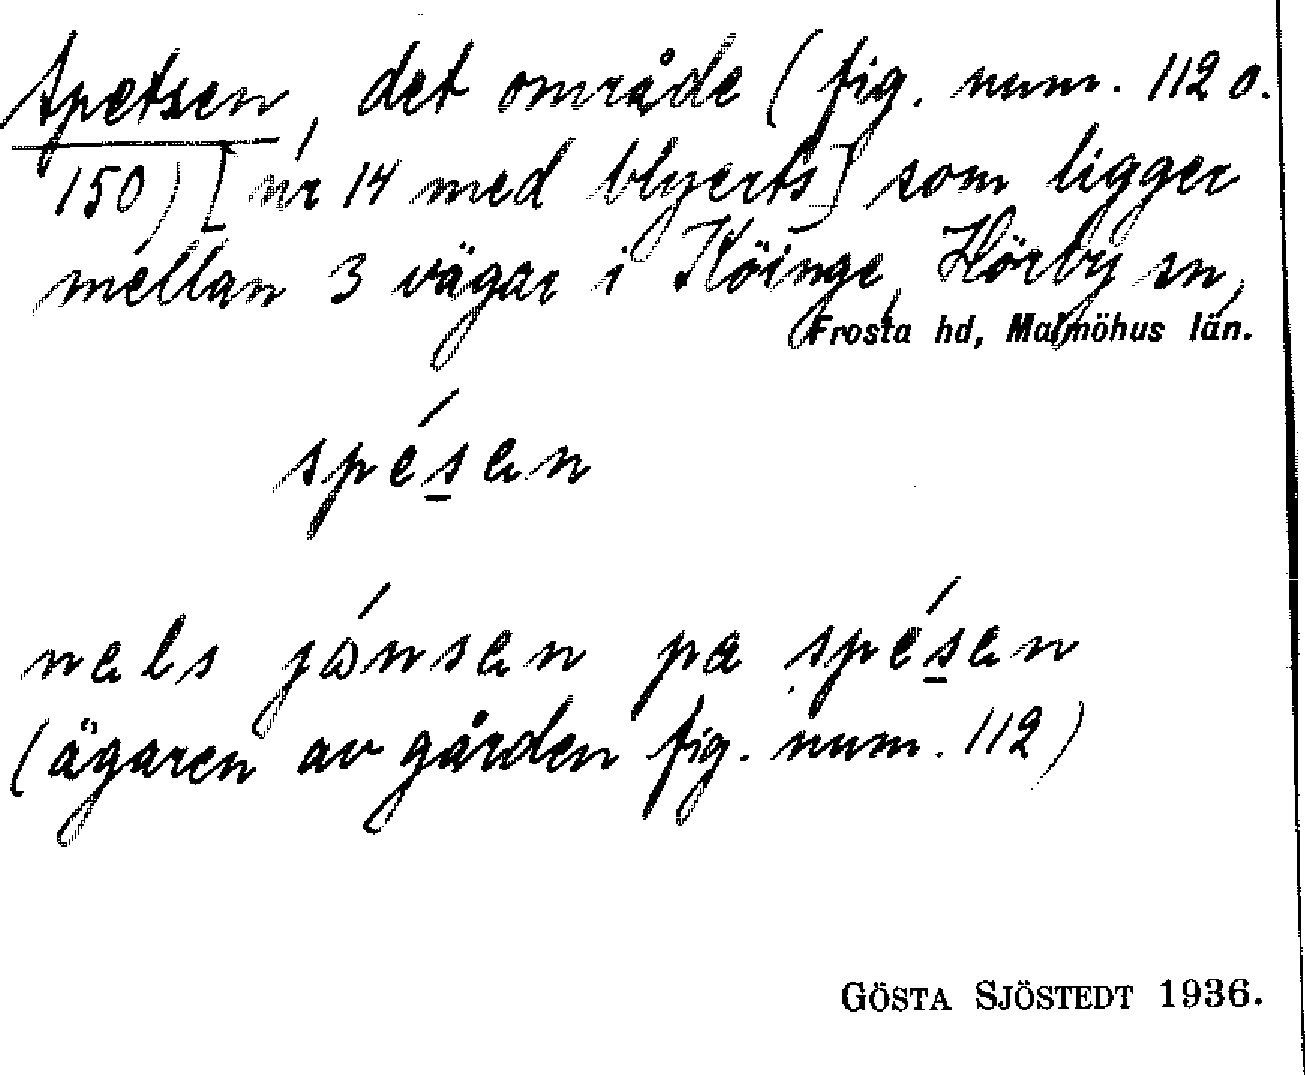 Spetsen, det område (fig. num. 112 o.
150) [nr 14 med blyerts] som ligger
mellan 3 vägar i Köinge, Hörby sn,
Frosta hd, Malmöhus län.
spésen
nels jónsen pa spésen
(ägaren av gården fig. num. 112)
GÖSTA SJÖSTEDT 1936.